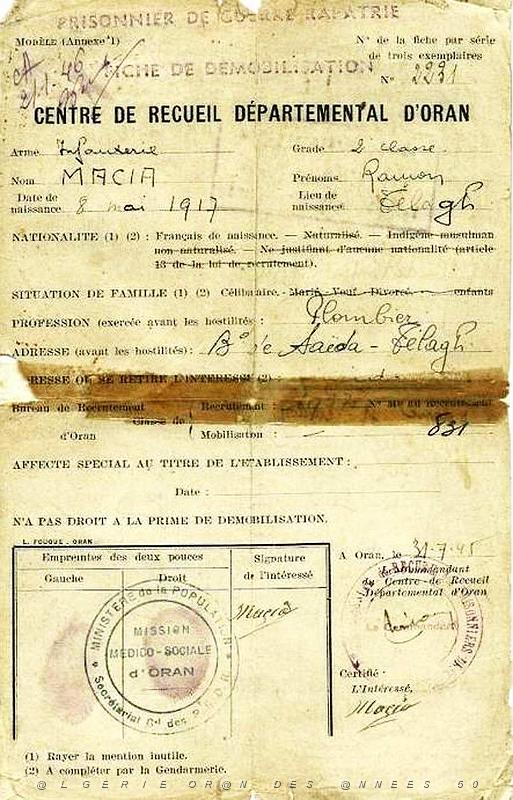 PRISONNIER DE GUERRE RAPATRIE
MODÈLE (Annexe 1)
N° de la fiche par série
de trois exemplaires
FICHE DE DEMOBILISATION
N° 2231
21-1-46
CENTRE DE RECUEIL DÉPARTEMENTAL D'ORAN
Arme Infanterie
Grade 2 classe
Nom MACIA
Prénoms Ramon
Date de naissance 8 mai 1917
Lieu de naissance Télagh
NATIONALITE (1) (2) : Français de naissance. — Naturalisé. — Indigène musulman
non naturalisé. — Ne justifiant d'aucune nationalité (article
13 de la loi de recrutement).
SITUATION DE FAMILLE (1) (2) Célibataire. Marié Veuf Divorcé enfants
PROFESSION (exercée avant les hostilités) : Plombier
ADRESSE (avant les hostilités) : Bd de Saïda - Télagh
RESSE OU SE RETIRE L'INTERESSE (2) :
Bureau de Recrutement
Classe de
Recrutement :
N° Mle au recrutement
d'Oran
Mobilisation : —
831
AFFECTE SPECIAL AU TITRE DE L'ETABLISSEMENT :
Date :
N'A PAS DROIT A LA PRIME DE DEMOBILISATION.
L. FOUQUE - ORAN
Empreintes des deux pouces
Gauche
Droit
Signature
de l'intéressé
Macia
MINISTERE de la POPULATION
MISSION
MEDICO-SOCIALE
d'ORAN
Secrétariat Gal des P.G.D.R.
A Oran, le 31-7-45
Le Commandant
du Centre de Recueil
Départemental d'Oran
Certifié :
L'Intéressé,
Macia
(1) Rayer la mention inutile.
(2) A compléter par la Gendarmerie.
@LGERIE OR@N DES @NNEES 50